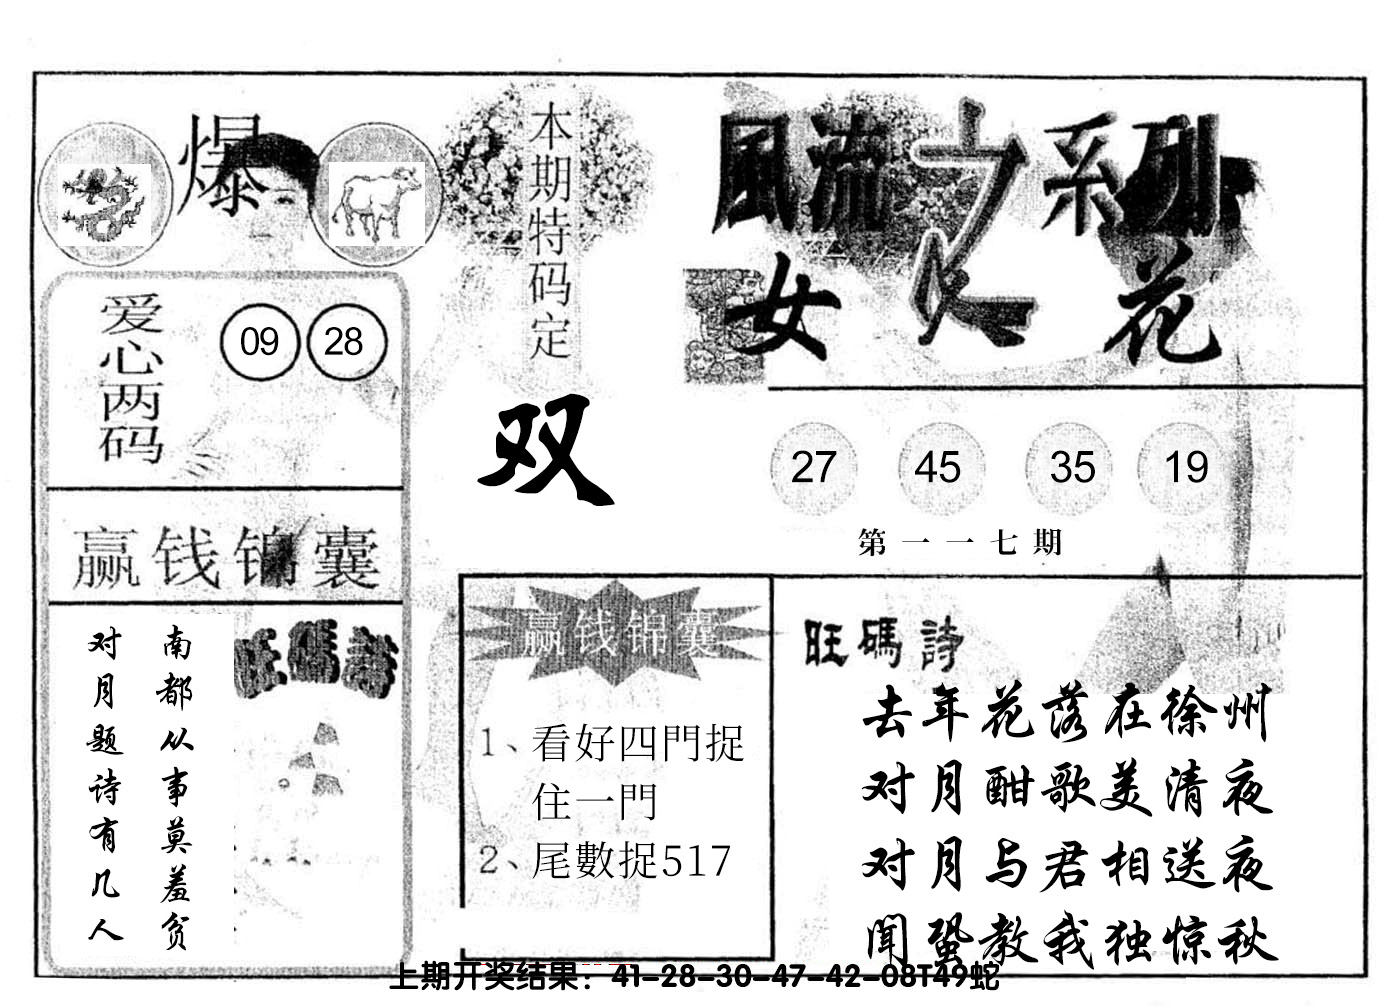 爆
爱心两码
09 28
赢钱锦囊
南都从事莫羞贫
对月题诗有几人
旺碼詩
本期特码定
双
赢钱锦囊
1、看好四門捉
住一門
2、尾數捉517
風流之系列
女人花
27 45 35 19
第一一七期
旺碼詩
去年花落在徐州
对月酣歌美清夜
对月与君相送夜
闻蛩教我独惊秋
上期开奖结果：41-28-30-47-42-08T49蛇